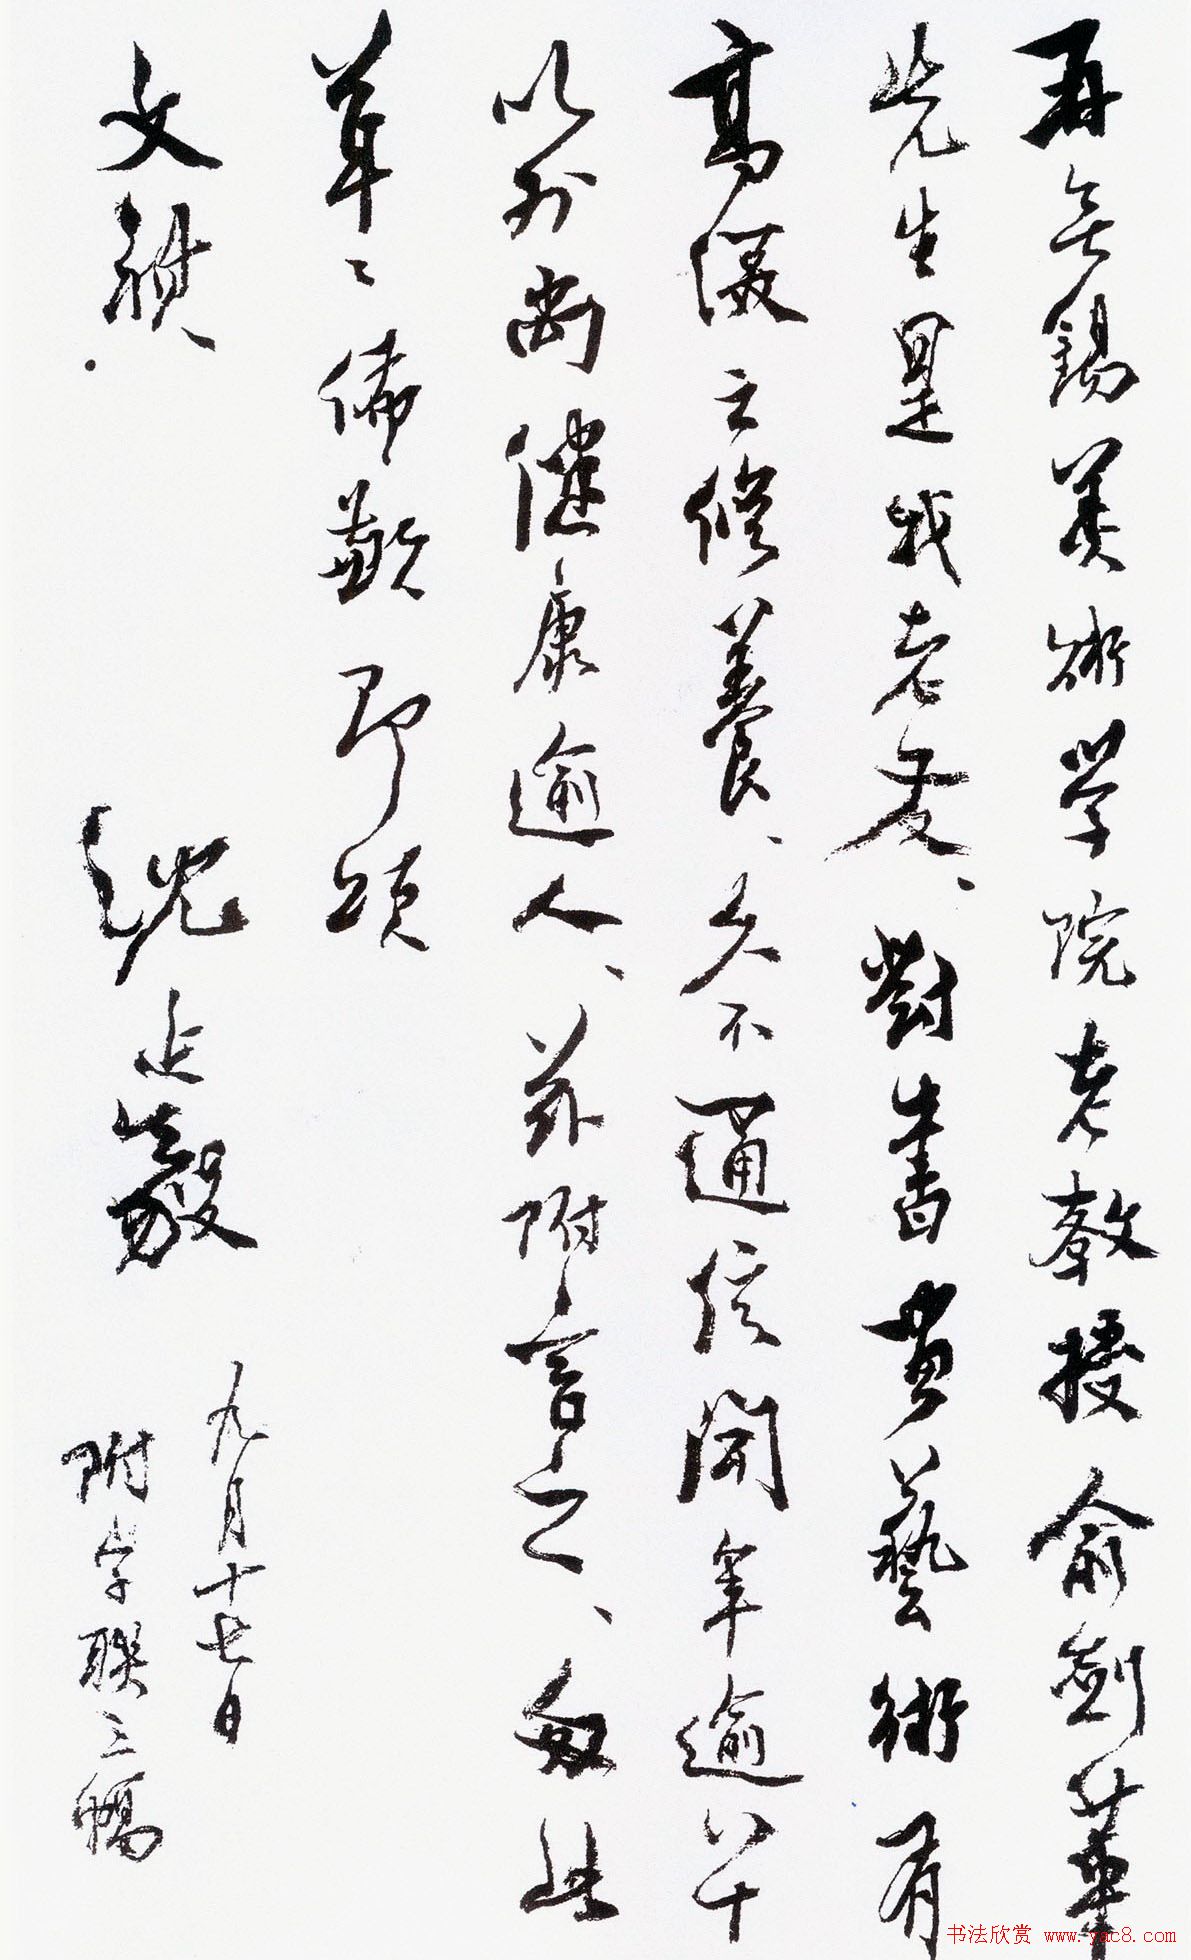 再无錫美術学院老教授俞劍華
先生是我老友、對書畫藝術有
高深之修養、久不通信聞年逾八十
以外尚健康逾人、茲附言之、此
草々佈歉即頌
文祺.
沈延毅
九月十七日
附字联三幅
书法欣赏 www.yac8.com